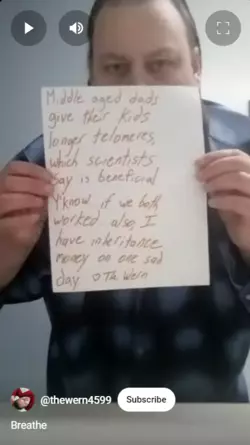 Middle aged dads
give their kids
longer telomeres,
which scientists
say is beneficial
Y'know if we both
worked also, I
have inheritance
money on one sad
day © The Wern
@thewern4599
Subscribe
Breathe